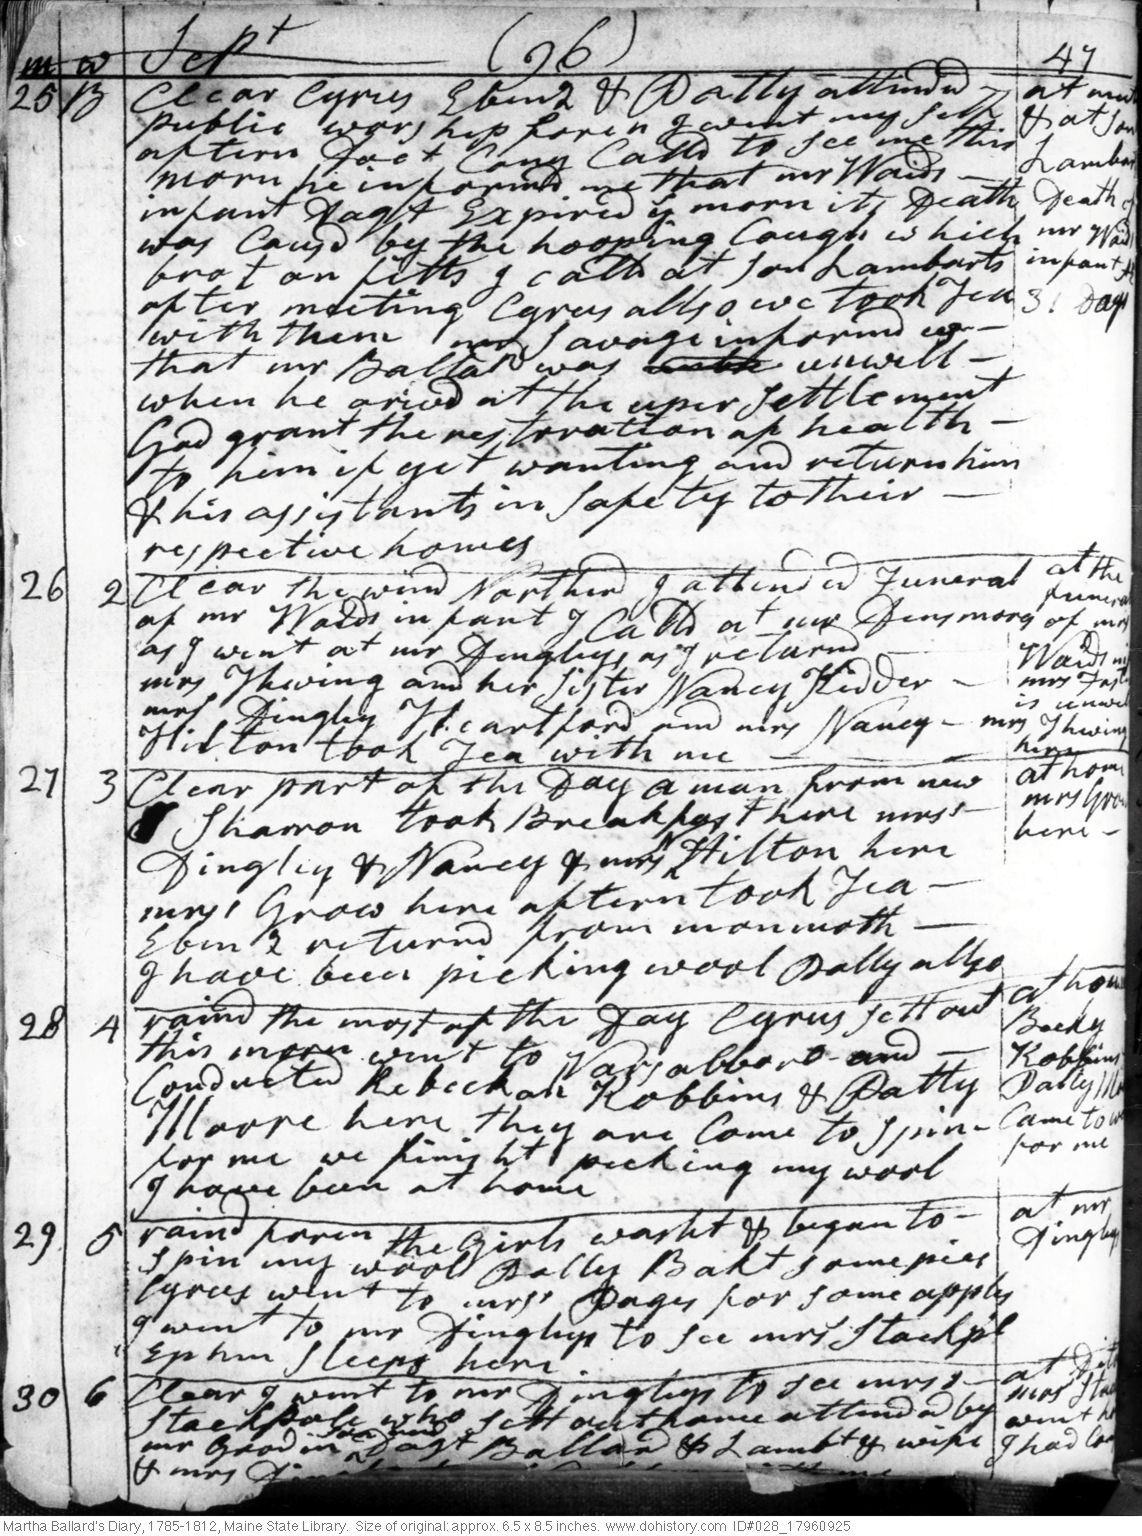 m w Sept (96) 47
25 B Clear Cyrus Ebenz & Dolly attended
public worship foren I went my self
aftern Doct Cony Calld to see me this
morn he informd me that mr Waids
infant Dagt Expired ys morn its Death
was Causd by the hooping Cough which
brot on fitts I calld at son Lambarts
after meeting Cyrus allso we took Tea
with them mr Savage informd us
that mr Ballard was unwell
when he arivd at the uper settlement
God grant the restoration of health
to him if yet wanting and return him
& his assistants in safety to their
respective homes
at
& at son
Lambar
Death of
mr Waids
infant
31 Days
26 2 Clear the wind Northerd I attended Funeral
of mr Waids infant I Calld at mr Densmors
as I went at mr Dingleys as I returnd
mrs Thwing and her sister Nancy Kidder
mrs Dingley Heartford and mrs Nancy
Hilton took Tea with me
at the
funeral
of mrs
Waids
mrs
is unwel
mrs Thwing
here
27 3 Clear part of the Day a man from new
Sharron took Breakfast here mrss
Dingley & Nancy & mrs Hilton here
mrss Grow here aftern took Tea
Ebenz returnd from monmoth
I have been picking wool Dolly allso
at home
mrs Grow
here
28 4 raind the most of the Day Cyrus sett out
this morn went to Varsalboro and
Conducted Rebeckah Robbins & Dolly
here they are Come to spin
for me we finisht pecking my wool
I have been at home
at home
Becky
Robbins
Dolly
Came to
for me
29 5 raind foren the Girls washt & began to
spin my wool Dolly Bakt some pies
Cyrus went to mrss Pages for some apples
I went to mr Dingleys to see mrs Stackpl
Ephm sleeps here
at mr
Dingleys
30 6 Clear I went to mr Dingleys to see mrss
Stackpole who sett out home attended by
mr Son and Dagt Ballard & Lambt & wife
& mrs
at
mrs
went
I had
Martha Ballard's Diary, 1785-1812, Maine State Library. Size of original: approx. 6.5 x 8.5 inches. www.dohistory.com ID#028_17960925